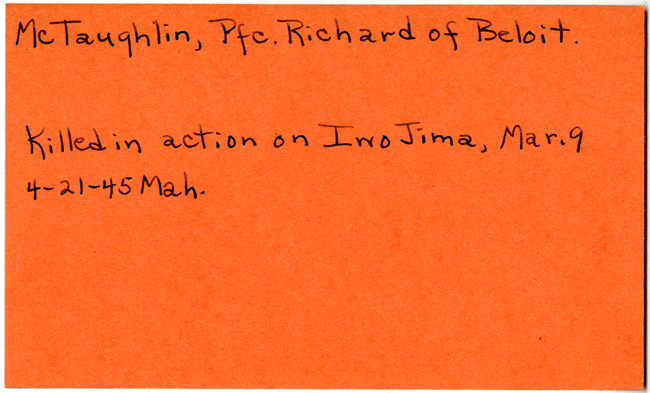 McTaughlin, Pfc. Richard of Beloit.
Killed in action on Iwo Jima, Mar. 9
4-21-45 Mah.